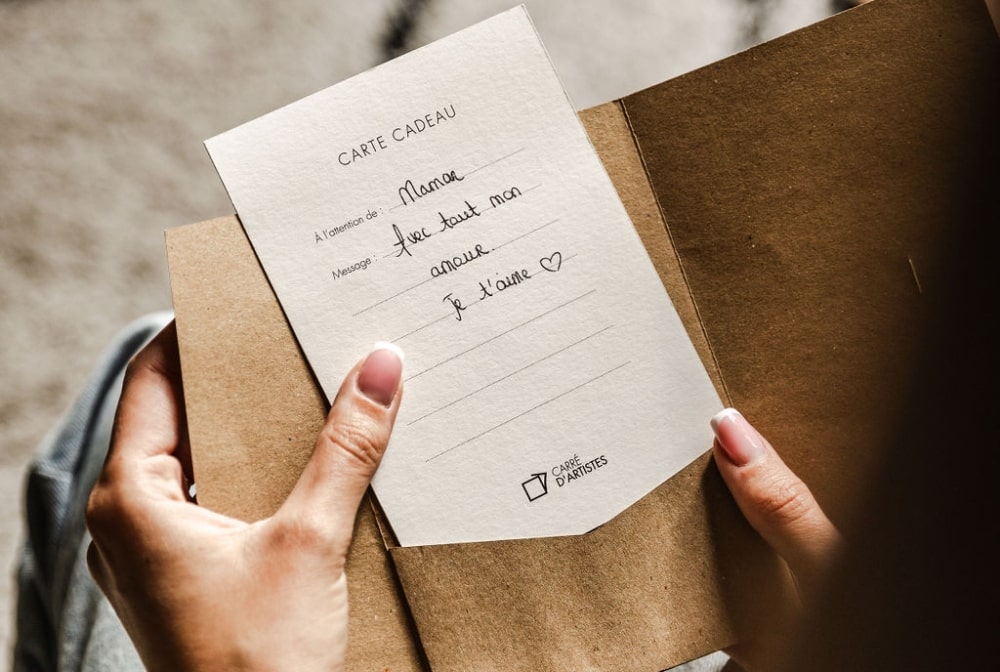 CARTE CADEAU
À l'attention de : Maman
Message : Avec tout mon
amour.
Je t'aime ♡
CARRÉ
D'ARTISTES